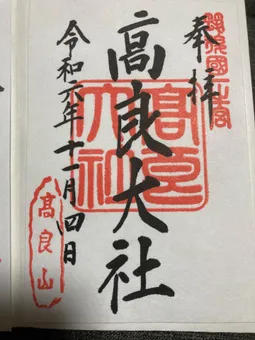 奉拝
筑後國一之宮
髙良大社
髙良大社
令和六年十一月四日
髙良山